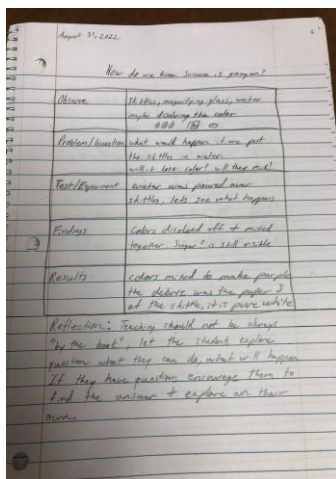 August 31, 2022
How do we know Science is going on?
Observe
Skittles, magnifying glass, water
maybe disolving the color
Problem/Question
what would happen if we put
the skittles in water.
will it lose color? will they mix?
Test/Experiment
water was poured over
skittles, lets see what happens
Findings
Colors disolved off + mixed
together Sugar? is still visible
Results
colors mixed to make purple
the was the paper S
of the skittle, it is pure white
Reflection: Teaching should not be always
"by the book", let the students explore
question what they can do, what will happen
If they have question encourage them to
find the answer + explore on their
own.